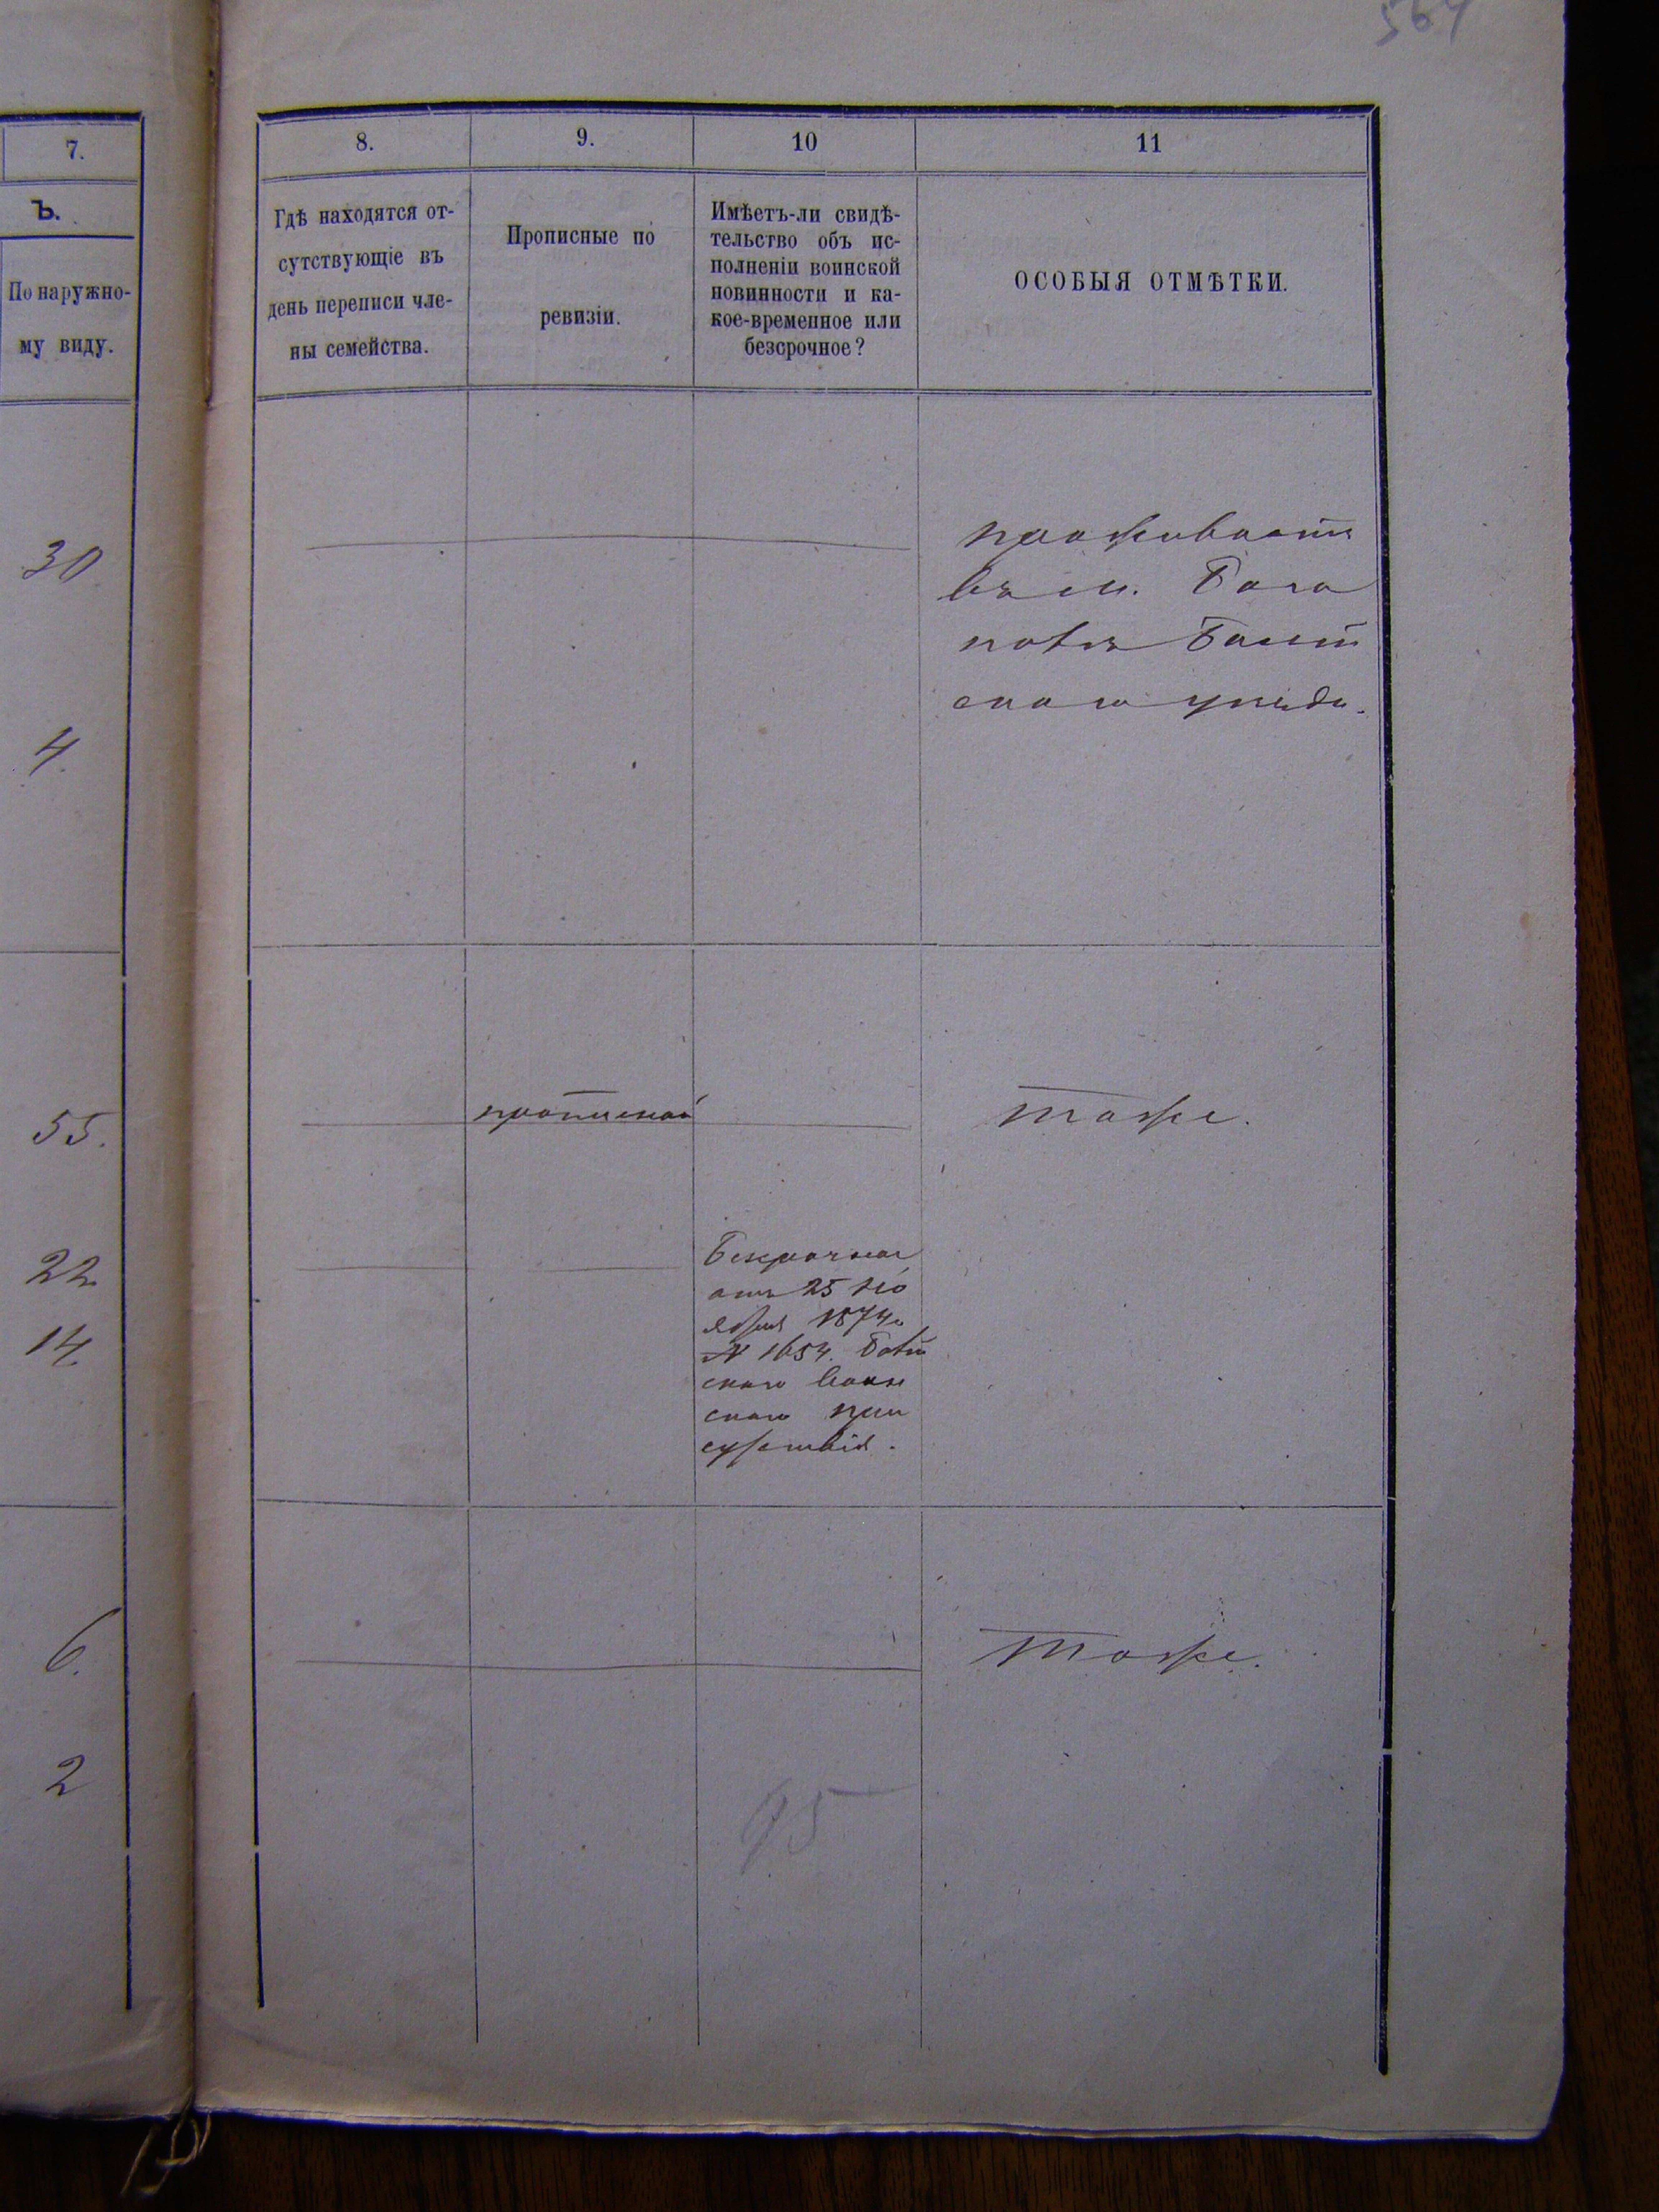 564
7.
Ъ.
По наружно-
му виду.
30
4.
55.
22
14.
6.
2
8.
9.
10
11
Гдѣ находятся от-
сутствующіе въ
день переписи чле-
ны семейства.
Прописные по
ревизіи.
Имѣетъ-ли свидѣ-
тельство объ ис-
полненіи воинской
повинности и ка-
кое-временное или
безсрочное?
ОСОБЫЯ ОТМѢТКИ.
проживаетъ
въ м. Бога
полѣ Балт
скаго уѣзда.
прописной
тоже.
Безсрочное
отъ 25 Но
ября 1874
№ 1654. Балт
скаго Воин
скаго при
сутствія.
тоже.
95